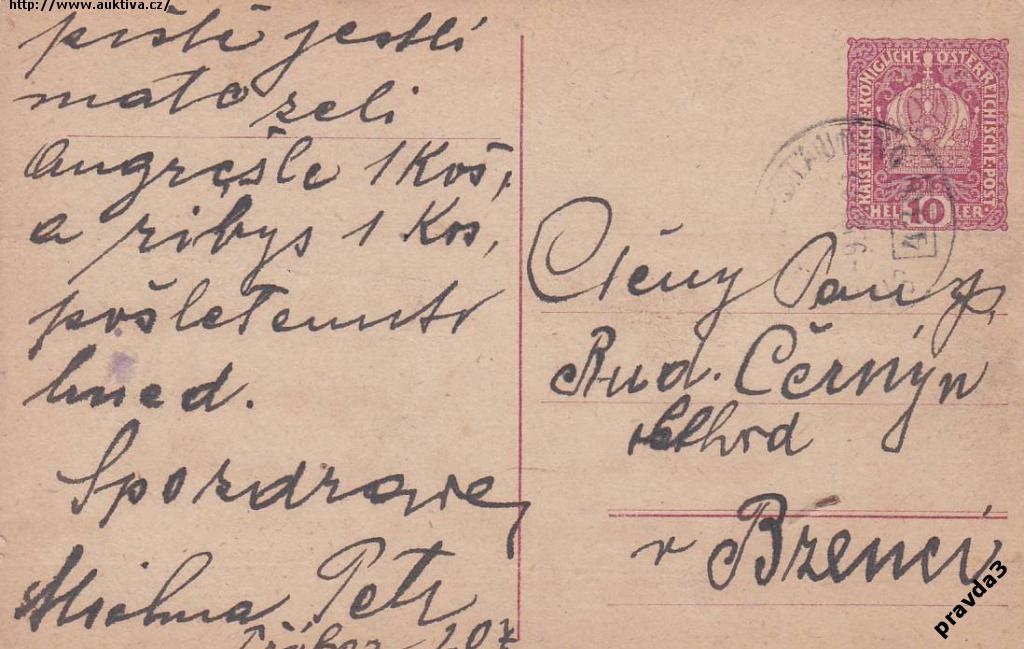 http://www.auktiva.cz/
pište jestli
mate zeli
Angrešle 1 Koš,
a ribys 1 Koš,
pošletemito
hned.
Spozdravem
Petr
107
KAISERLICHE·KÖNIGLICHE ÖSTERREICHISCHE·POST·
HELLER
10
Ctěny Pan
Rud. Černýn
v Bzenci
pravda3